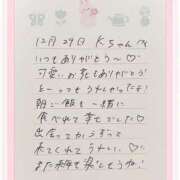 12月29日 Kちゃんへ
いつもありがとう〜♡
可愛いお花もありがとう!
とーってもうれしかったよ♡
朝ご飯も一緒に
食べれて幸せでした♡
出会ってからずっと
来てくれてうれしい♡
また梅で楽しもうね!